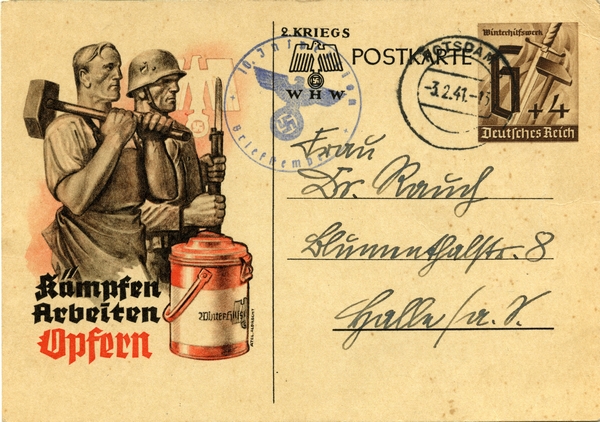 2. KRIEGS
WHW
POSTKARTE
Winterhilfswerk
6+4
Deutsches Reich
POTSDAM
-3.2.41.-
Briefstempel
Frau
Dr. Rauch
Blumenthalstr. 8
Halle /a. S.
Kämpfen
Arbeiten
Opfern
Winterhilfs